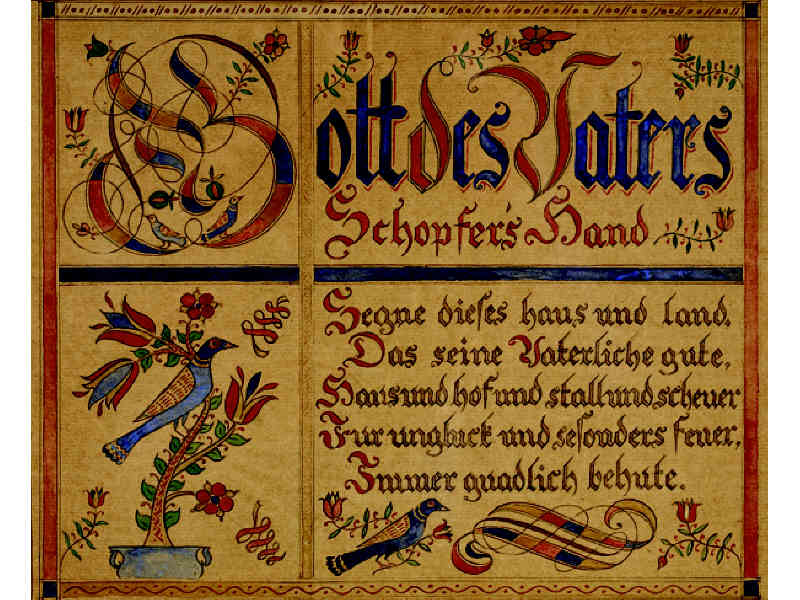 Gott des Vaters
Schopfer's Hand
Segne dieses haus und land.
Das seine Vaterliche gute,
Haus und hof und stall und scheuer
Fur ungluck und sesonders feuer,
Immer gnadlich behute.